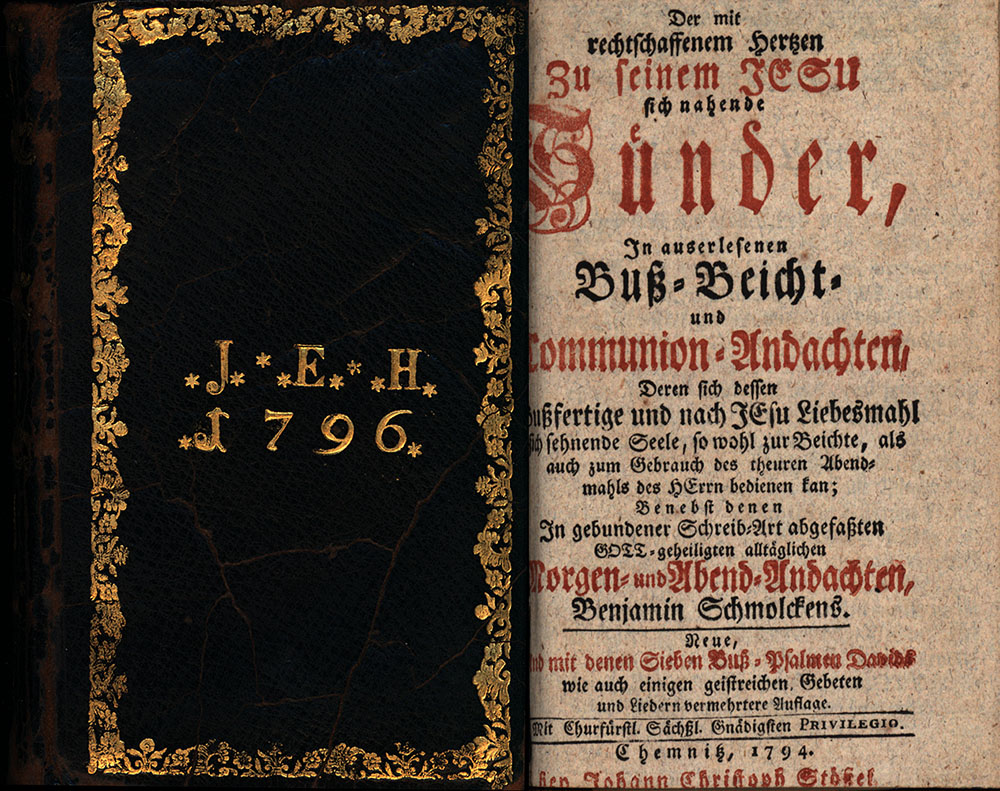 J * E * H
1796
Der mit
rechtschaffenem Hertzen
Zu seinem JESU
sich nahende
Sünder,
In auserlesenen
Buß-Beicht-
und
Communion-Andachten,
Deren sich dessen
bußfertige und nach JEsu Liebesmahl
sich sehnende Seele, so wohl zur Beichte, als
auch zum Gebrauch des theuren Abend-
mahls des HErrn bedienen kan;
Benebst denen
In gebundener Schreib-Art abgefaßten
GOTT-geheiligten alltäglichen
Morgen- und Abend-Andachten,
Benjamin Schmolckens.
Neue,
und mit denen Sieben Buß-Psalmen Davids
wie auch einigen geistreichen Gebeten
und Liedern vermehrtere Auflage.
Mit Churfürstl. Sächßl. Gnädigsten PRIVILEGIO.
Chemnitz, 1794.
bey Johann Christoph Stößel